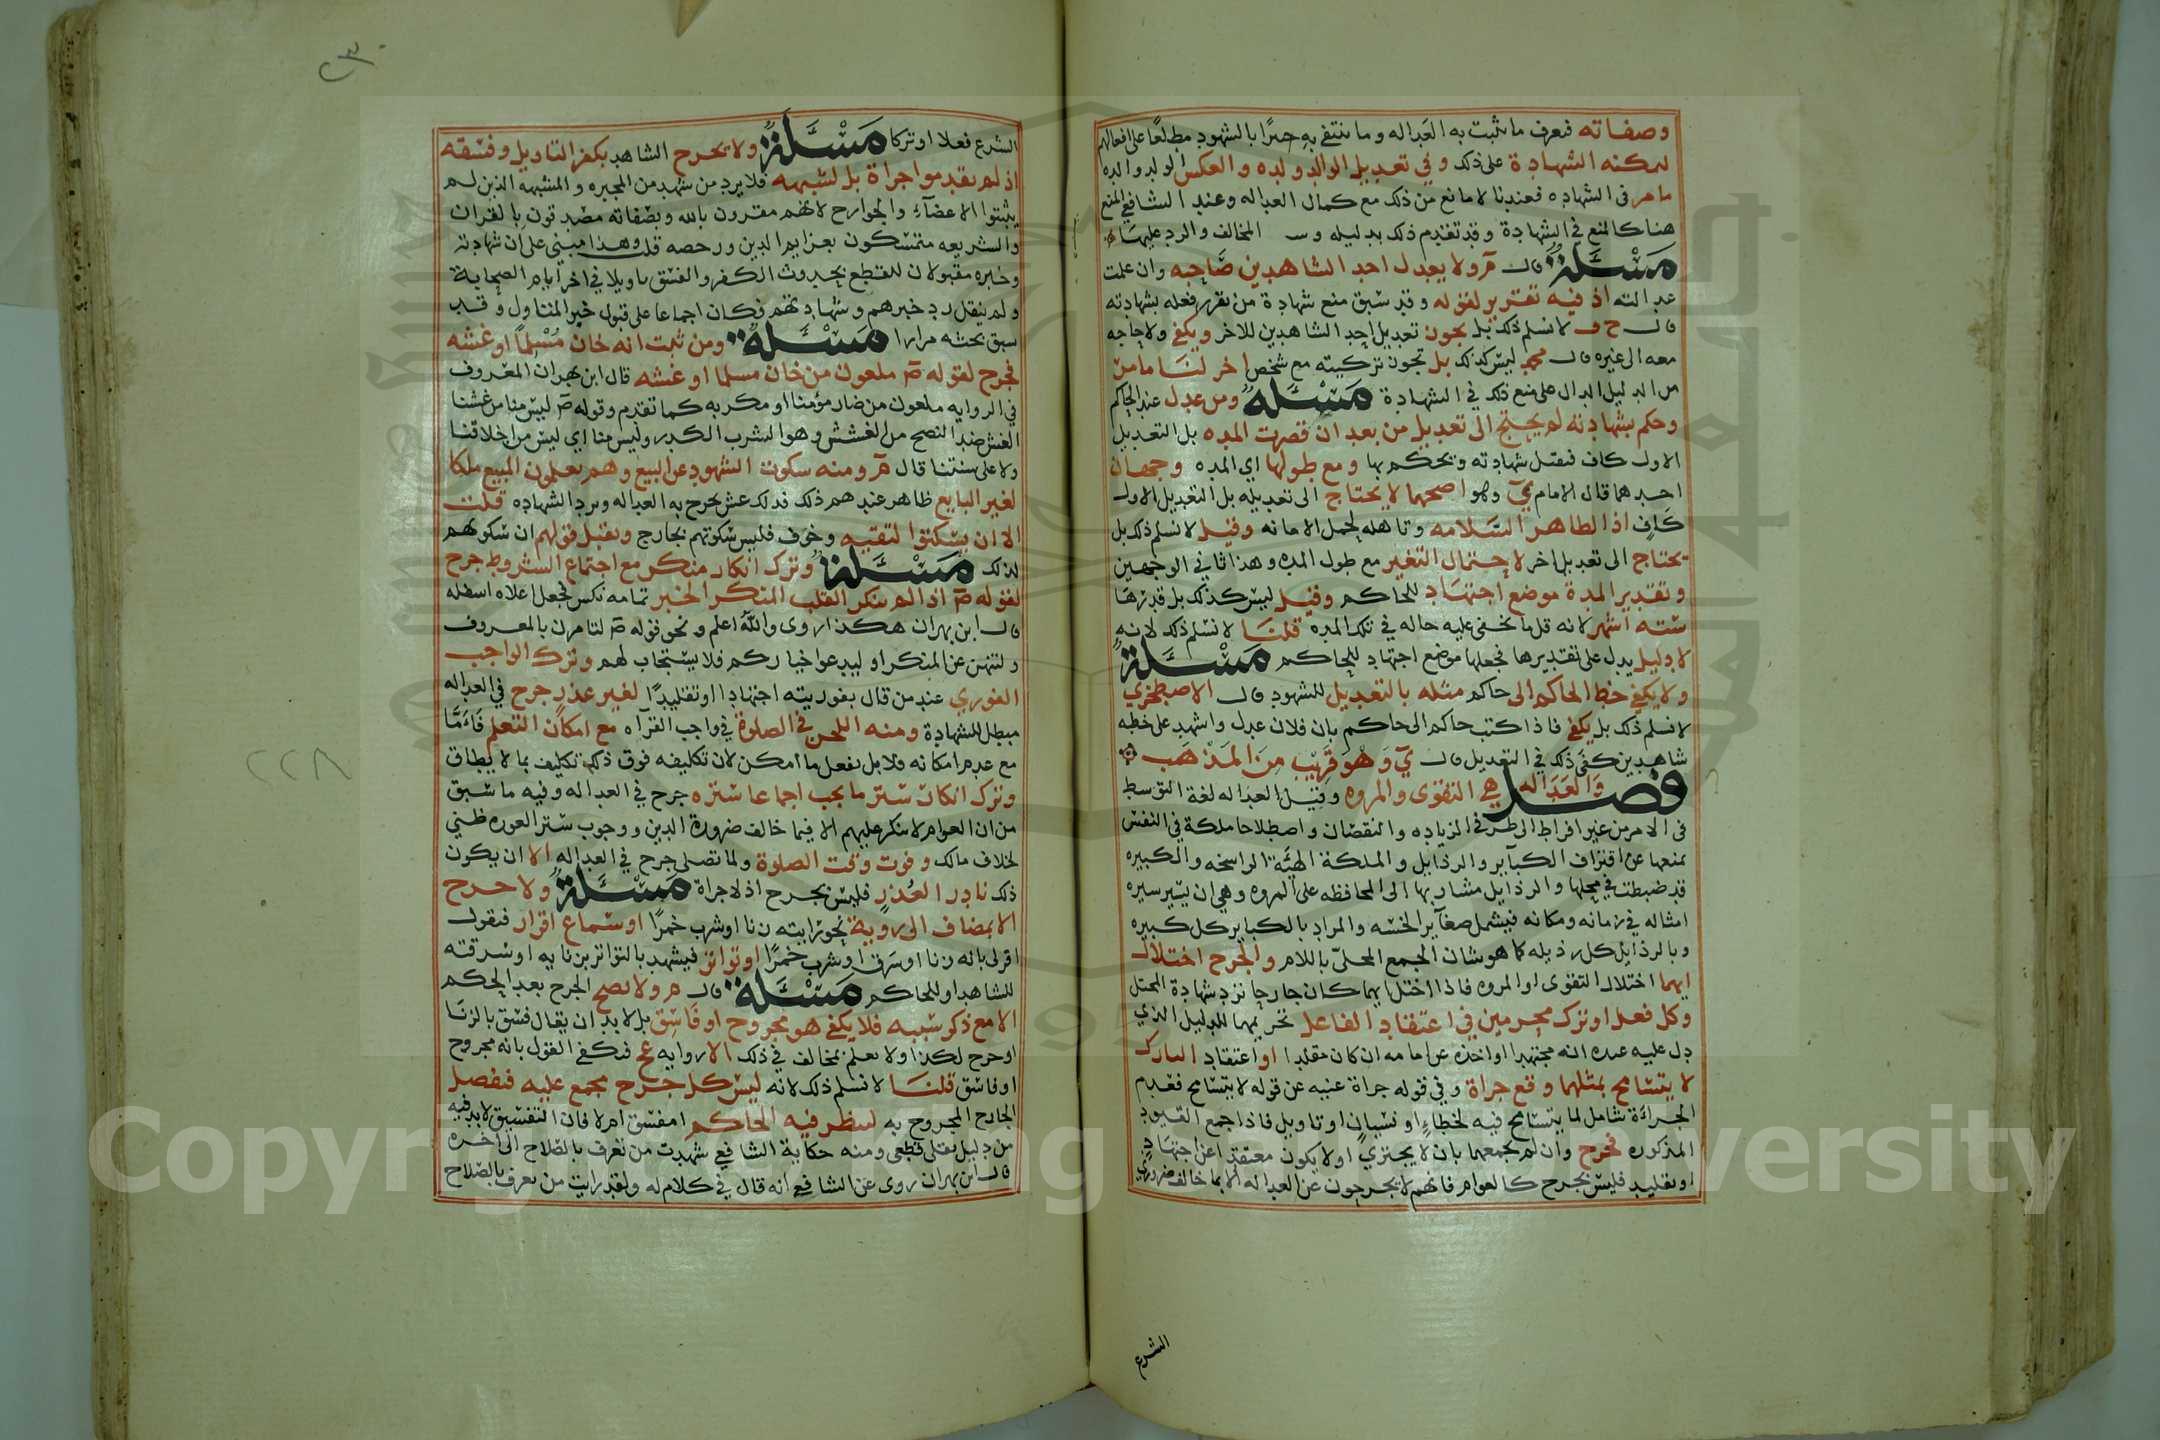 وصفاته فيعرف ما تثبت به العداله وما ينتفي به خبرًا بالشهود مطلعًا على افعالهم
ليمكنه الشهادة على ذلك وفي تعديل الوالد ولده والعكس الولد والده
ما مر في الشهاده فعندنا لا مانع من ذلك مع كمال العداله وعند الشافعي المنع
هنا كالمنع في الشهادة وقد تقدم ذلك بدليله و المخالف والرد عليها
مَسْئَلة قال م ولا يعدل احد الشاهدين صاحبه وان علمت
عدالته اذ فيه تقرير لقوله وقد سبق منع شهادة من تقرر فعله بشهادته
قال ح ف لا نسلم ذلك بل يجون تعديل احد الشاهدين للاخر ويكفي ولا حاجه
معه الى غيره قال محمد ليس كذلك بل تجون تزكيته مع شخص اخر لنا ما مر
من الدليل الدال على منع ذلك في الشهادة مَسْئَلة ومن عدل عند الحاكم
وحكم بشهادته لم يحتج الى تعديل من بعد ان قصرت المده بل التعديل
الاول كاف فتقبل شهادته ويحكم بها ومع طولها اي المده وجهان
احدهما قال الامام ي وهو اصحهما لا يحتاج الى تعديله بل التعديل الاول
كَافٍ اذ الظاهر السلامه وتاهله لحمل الامانه وقيل لا نسلم ذلك بل
يحتاج الى تعديل اخر لاحتمال التغير مع طول المده وهذا ثاني الوجهين
وتقدير المدة موضع اجتهاد للحاكم وقيل ليس كذلك بل قدرها
سته اشهر لانه قل ما يخفى عليه حاله في تلك المده قلنا لا نسلم ذلك لانه
لا دليل يدل على تقديرها فجعلها موضع اجتهاد للحاكم مَسْئَلة
ولا يكفي خط الحاكم الى حاكم مثله بالتعديل للشهود قال الاصطخري
لا نسلم ذلك بل يكفي فاذا كتب حاكم الى حاكم بان فلان عدل واشهد على خطه
شاهدين كفى ذلك في التعديل قال ي وَهْوَ قَرِيْب مِنَ المَذْهَب
فصل وَالعَدَاله هي التقوى والمروه وقيل العداله لغة التوسط
في الامر من غير افراط الى طرفي الزياده والنقصان واصطلاحا ملكة في النفس
يمنعها عن اقتراف الكبآير والرذايل والملكة الهيئة الراسخه والكبيره
قد ضبطت في محلها والرذايل مشار بها الى المحافظه على المروه وهي ان يسير سيره
امثاله في زمانه ومكانه فيشمل صغآير الخسه والمراد بالكباير كل كبيره
وبالرذايل كل رذيله كما هو شان الجمع المحلّى باللام والجرح اختلال
ايهما اختلال التقوى او المروه فاذا اختل ايهما كان جارحا نرد شهادة المختل
وكل فعل او ترك محرمين في اعتقاد الفاعل تحريمهما للدليل الذي
دل عليه عنده انه مجتهدا او اخذه عن امامه ان كان مقلدا او اعتقاد التارك
لا يتسامح بمثلهما وقع جراة وفي قوله جراة غنيه عن قوله لا يتسامح فعدم
الجراءة شامل لما يتسامح فيه لخطاءٍ او نسيان او تاويل فاذا جمع القيود
المذكوره فجرح وان لم يجمعها بان لا يجتري او لا يكون معتقد اعن اجتهاد
او تقليد فليس بجرح كالعوام فانهم لا يخرجون عن العداله الا بما خالف ضرورة
الشرع
٢٣٠
الشرع فعلا او تركا مَسْئَلة ولا يجرح الشاهد بكفر التاويل وفسقه
اذ لم يقدموا جراة بل لشبهه فلا يرد من شهد من المجبره والمشبهه الذين لم
يثبتوا الاعضآء والجوارح لانهم مقرون بالله وبصفاته مصدقون بالقران
والشريعه متمسكون بعزايم الدين ورخصه قلت وهذا مبني على ان شهادته
وخبره مقبولان للقطع بحدوث الكفر والفسق تاويلا في اخر ايام الصحابة
ولم ينقل رد خبرهم وشهادتهم فكان اجماعا على قبول خبر المتاول وقد
سبق بحثه مرارا مَسْئَلة ومن ثبت انه خان مُسْلمًا او غشه
فجرح لقوله ص ملعون من خان مسلما او غشه قال ابن بهران المعروف
في الروايه ملعون من ضار مؤمنا او مكر به كما تقدم وقوله ص ليس منا من غشنا
الغش ضد النصح من الغشش وهو الشرب الكدر وليس منا اي ليس من اخلاقنا
ولا على سنتنا قال م ومنه سكوت الشهود عن البيع وهم يعلمون المبيع ملكا
لغير البايع ظاهر عندهم ذلك فذلك غش يجرح به العداله ويرد الشهاده قلت
الا ان يسكتوا لتقيه وخوف فليس سكوتهم بجارح ويقبل قولهم ان سكوتهم
لذلك مَسْئَلة وترك انكار منكر مع اجتماع الشروط جرح
لقوله ص اذا لم ينكر القلب المنكر الخبر تمامه نكس فجعل اعلاه اسفله
قال ابن بهران هكذا روى والله اعلم ونحو قوله ص لتامرن بالمعروف
ولتنهن عن المنكر او ليدعوا خياركم فلا يستجاب لهم وترك الواجب
الفوري عند من قال بفوريته اجتهادا او تقليدًا لغير عذر جرح في العداله
مبطل للشهادة ومنه اللحن في الصلوة في واجب القرآه مع امكان التعلم فَاَمَّا
مع عدم امكانه فلا بل يفعل ما امكن لان تكليفه فوق ذلك تكليف بما لا يطاق
وترك انكان ستر ما يجب اجماعا ستره جرح في العداله وفيه ما سبق
من ان العوام لا ينكر عليهم الا فيما خالف ضرورة الدين ووجوب ستر العوره ظني
لخلاف مالك وفوت وقت الصلوة ولما تصلي جرح في العداله الا ان يكون
ذلك نادر العُذرٍ فليس بجرح اذ لا جراة مَسْئَلة ولا جرح
الا بمضاف الى روية نحو رايته زنا او شرب خمرًا او سماع اقرار فيقول
اقر لي بانه زنا او سَرق او شرب خمرًا او تواتر فيشهد بالتواتر بزنا به او سرقته
للشاهد او للحاكم مَسْئَلة قال م ولا يصح الجرح بعد الحكم
الا مع ذكر سببه فلا يكفي هو مجروح او فاسق بل لا بد ان يقال فسق بالزنا
او جرح لكذا ولا نعلم بمخالف في ذلك الا روايه ع فيكفي القول بانه مجروح
او فاسق قلنا لا نسلم ذلك لانه ليس كل جرح مجمع عليه فيفصل
الجارح المجروح به لينظر فيه الحاكم امفسق ام لا فان التفسيق لا بد فيه
من دليل نقلي قطعي ومنه حكاية الشافعي شهدت من نعرف بالصلاح الى اخره
قال ابن بهران روى عن الشافعي انه قال في كلام له ولقد رايت من يعرف بالصلاح
٢٢٨
Copyright © King Saud University